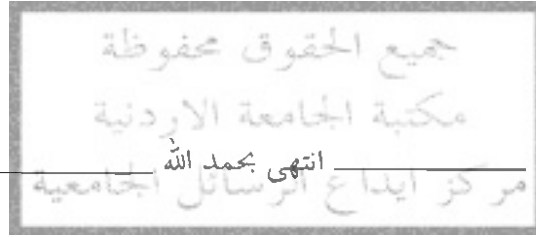 جميع الحقوق محفوظة
مكتبة الجامعة الاردنية
انتهى بحمد الله
مركز ايداع الرسائل الجامعية